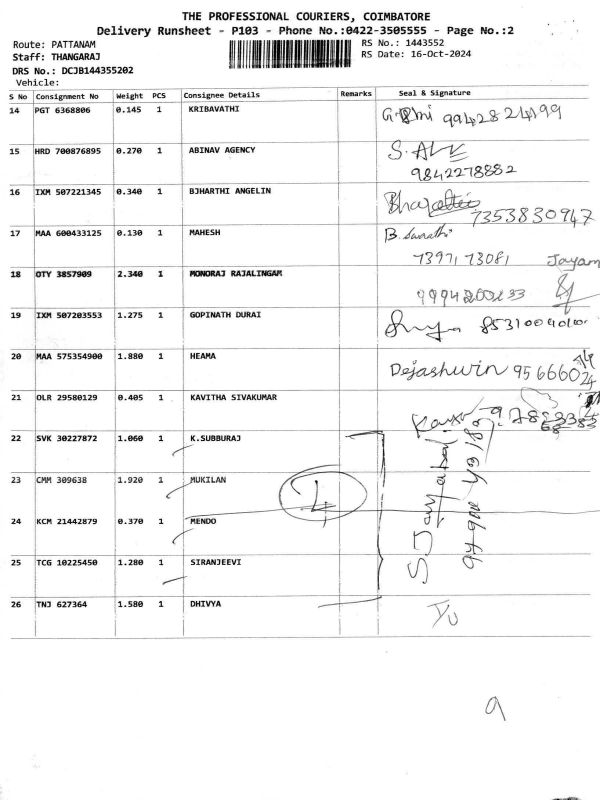 THE PROFESSIONAL COURIERS, COIMBATORE
Delivery Runsheet - P103 - Phone No.:0422-3505555 - Page No.:2
Route: PATTANAM
RS No.: 1443552
Staff: THANGARAJ
RS Date: 16-Oct-2024
DRS No.: DCJB144355202
Vehicle:
S No Consignment No Weight PCS Consignee Details Remarks Seal & Signature
14 PGT 6368806 0.145 1 KRIBAVATHI 9942824199
15 HRD 700876895 0.270 1 ABINAV AGENCY
9842278882
16 IXM 507221345 0.340 1 BJHARTHI ANGELIN
7353830947
17 MAA 600433125 0.130 1 MAHESH B. Swathi
73971 73081 Jayam
18 OTY 3857909 2.340 1 MONORAJ RAJALINGAM
19 IXM 507203553 1.275 1 GOPINATH DURAI
20 MAA 575354900 1.880 1 HEAMA Dejashwin 95666024
21 OLR 29580129 0.405 1 KAVITHA SIVAKUMAR
22 SVK 30227872 1.060 1 K.SUBBURAJ
23 CMM 309638 1.920 1 MUKILAN
24 KCM 21442879 0.370 1 MENDO
25 TCG 10225450 1.280 1 SIRANJEEVI
S. Jayabal
26 TNJ 627364 1.580 1 DHIVYA
9